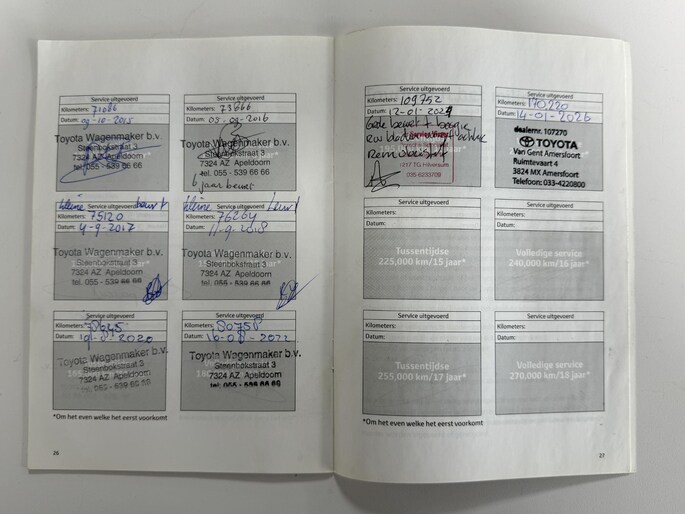 Service uitgevoerd
Kilometers: 71086
Datum: 09-10-2015
Toyota Wagenmaker b.v.
Steenbokstraat 3
7324 AZ Apeldoorn
tel. 055 - 539 66 66
Service uitgevoerd
Kilometers: 73666
Datum: 03-08-2016
Toyota Wagenmaker b.v.
Steenbokstraat 3
7324 AZ Apeldoorn
tel. 055 - 539 66 66
6 jaar beurt
kleine beurt
Service uitgevoerd
Kilometers: 75120
Datum: 4-9-2017
Toyota Wagenmaker b.v.
Steenbokstraat 3
7324 AZ Apeldoorn
tel. 055 - 539 66 66
kleine beurt
Service uitgevoerd
Kilometers: 76264
Datum: 11-9-2018
Toyota Wagenmaker b.v.
Steenbokstraat 3
7324 AZ Apeldoorn
tel. 055 - 539 66 66
Service uitgevoerd
Kilometers:
Datum: 2020
Toyota Wagenmaker b.v.
Steenbokstraat 3
7324 AZ Apeldoorn
tel. 055 - 539 66 66
Service uitgevoerd
Kilometers: 80758
Datum:
Toyota Wagenmaker b.v.
Steenbokstraat 3
7324 AZ Apeldoorn
tel. 055 - 539 66 66
*Om het even welke het eerst voorkomt
26
Service uitgevoerd
Kilometers: 109752
Datum: 12-01-2024
Grote beurt +
Remvloeistof
1217 TG Hilversum
035-6233709
Service uitgevoerd
Kilometers: 170220
Datum: 14-01-2026
dealernr. 107270
TOYOTA
Van Gent Amersfoort
Ruimtevaart 4
3824 MX Amersfoort
Telefoon: 033-4220800
Service uitgevoerd
Kilometers:
Datum:
Tussentijdse
225,000 km/15 jaar*
Service uitgevoerd
Kilometers:
Datum:
Volledige service
240,000 km/16 jaar*
Service uitgevoerd
Kilometers:
Datum:
Tussentijdse
255,000 km/17 jaar*
Service uitgevoerd
Kilometers:
Datum:
Volledige service
270,000 km/18 jaar*
*Om het even welke het eerst voorkomt
27